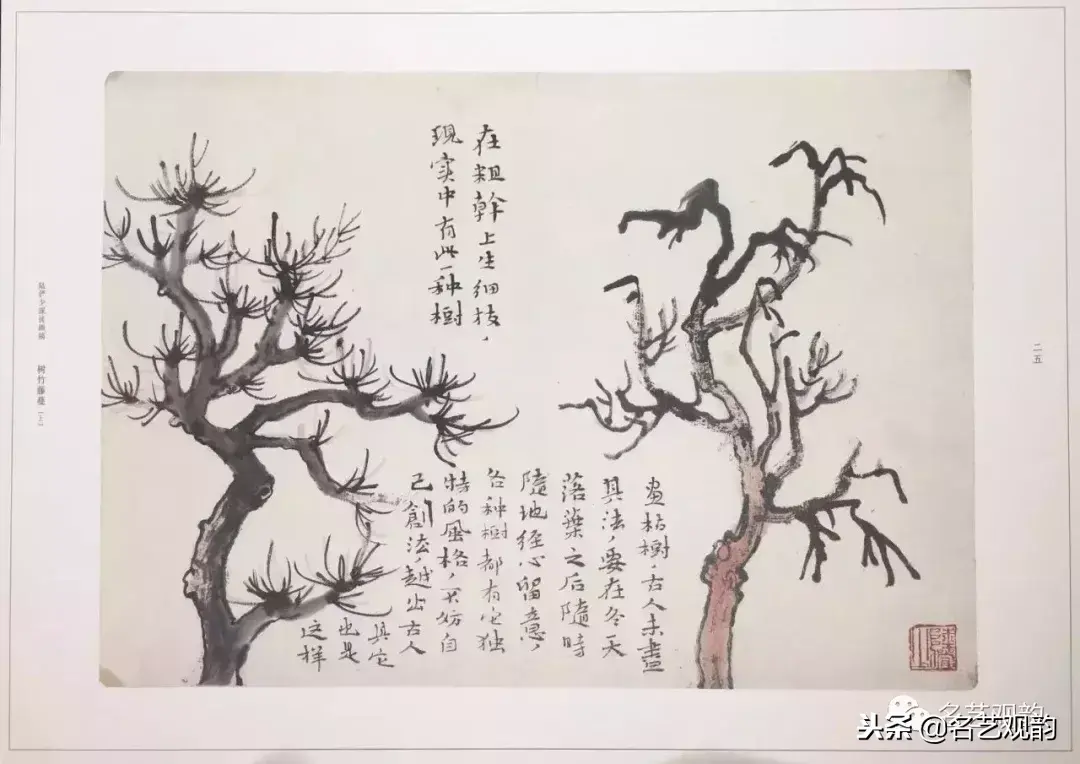 在粗幹上生细枝，
現实中有此一种樹
畫枯樹，古人未盡
其法，要在冬天
落葉之后隨時
隨地经心留意，
各种樹都有它独
特的風格，不妨自
己創法，越出古人
其它
也是
这样
二五
树竹藤蔓（上）
名艺观韵
头条@名艺观韵